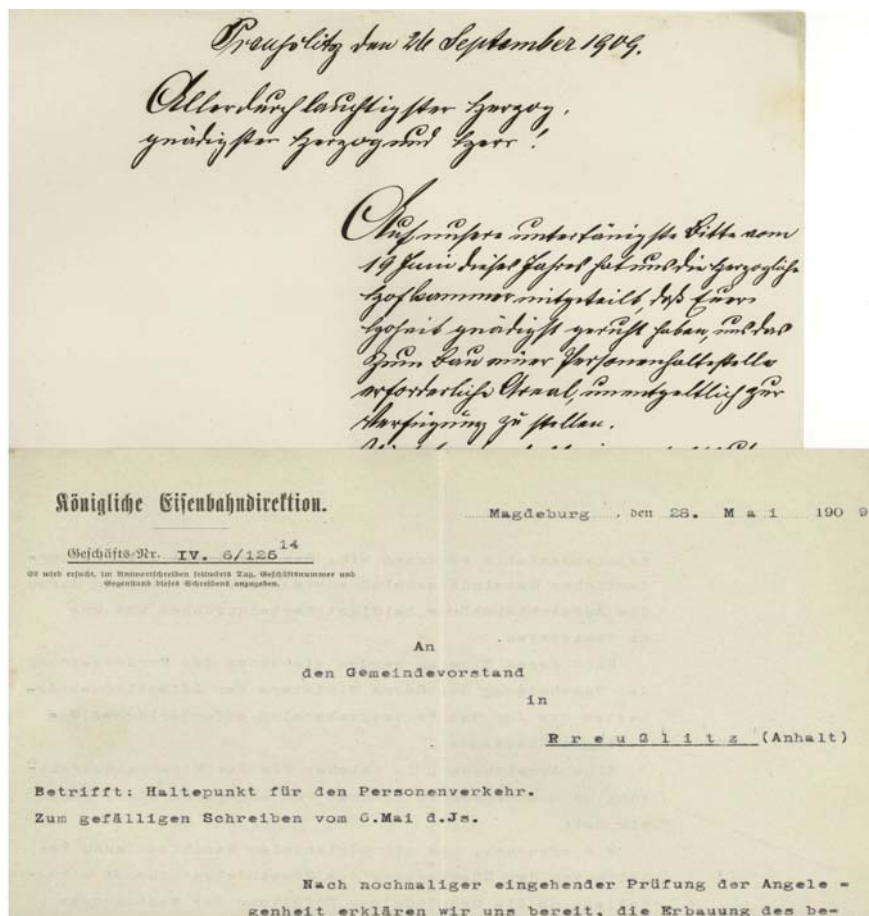 Preußlitz den 26 September 1909.
Allerdurchlauchtigster Herzog,
gnädigster Herzog und Herr!
Auf unsere unterthänigste Bitte vom
19 Juni dieses Jahres hat uns die Herzogliche
Hofkammer mitgeteilt, daß Euere
Hoheit gnädigst geruht haben, uns das
zum Bau einer Personenhaltestelle
erforderliche Areal, unentgeltlich zur
Verfügung zu stellen.
Königliche Eisenbahndirektion.
Magdeburg, den 28. Mai 1909
Geschäfts-Nr. IV. 6/125 14
Es wird ersucht, im Antwortschreiben seitwärts Tag, Geschäftsnummer und
Gegenstand dieses Schreibens anzugeben.
An
den Gemeindevorstand
in
Rreußlitz (Anhalt)
Betrifft: Haltepunkt für den Personenverkehr.
Zum gefälligen Schreiben vom 6.Mai d.Js.
Nach nochmaliger eingehender Prüfung der Angele =
genheit erklären wir uns bereit, die Erbauung des be-